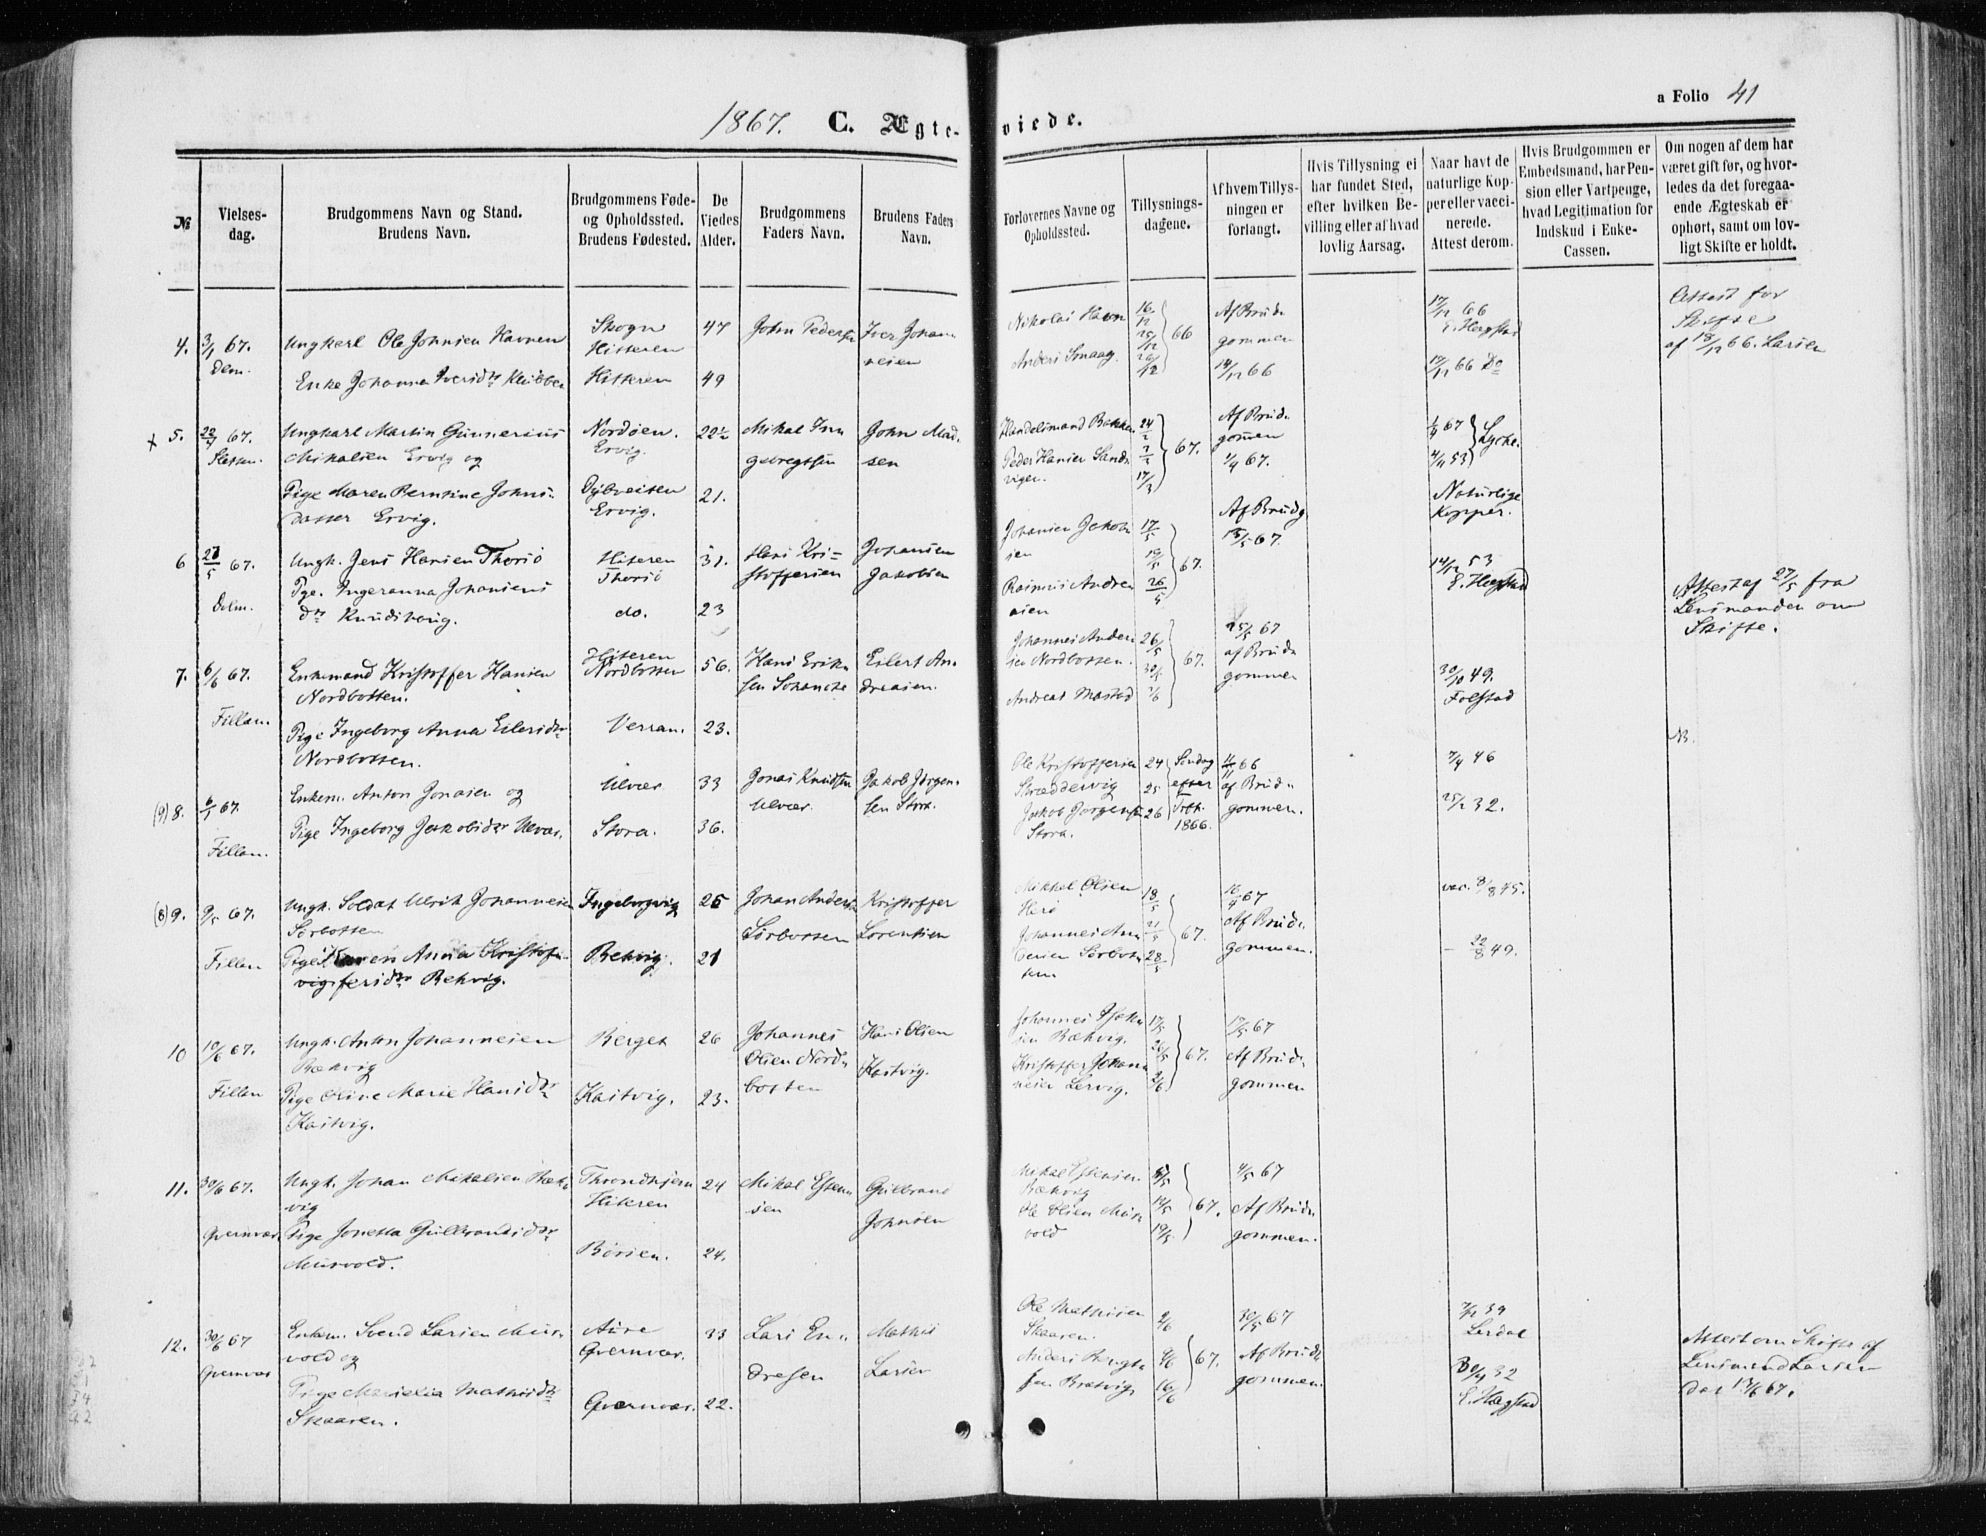 1867. C. Ægteviede.
a Folio 41
№
Vielsesdag.
Brudgommens Navn og Stand.
Brudens Navn.
Brudgommens Føde- og Opholdssted.
Brudens Fødested.
De Viedes Alder.
Brudgommens Faders Navn.
Brudens Faders Navn.
Forlovernes Navne og Opholdssted.
Tillysningsdagene.
Af hvem Tillysningen er forlangt.
Hvis Tillysning ei har fundet Sted, efter hvilken Bevilling eller af hvad lovlig Aarsag.
Naar havt de naturlige Kopper eller vaccinerede. Attest derom.
Hvis Brudgommen er Embedsmand, har Pension eller Vartpenge, hvad Legitimation for Indskud i Enke-Cassen.
Om nogen af dem har været gift før, og hvorledes da det foregaaende Ægteskab er ophørt, samt om lovligt Skifte er holdt.
4. 3/1 67. Dlm.
Ungkarl Ole Johnsen Havnen
Skogn
Hitteren
47
John Pedersen
Iver Johannesen
Enke Johanna Iversdtr
Hitteren
49
Nikolai Havn
Anders Smaag.
16/12 25/12 26/12 66
Af Brudgommen
14/12 66
17/12 66
E. Hegstad
17/12 66 Do
Attest for
Skifte
af 18/12 66. Larsen
x 5. 22/4 67.
Ungkarl Martin Gunnerius
Mikalsen Ervig og
Nordøen.
Ervig.
22½
John Madsen
Pige Maren Berntine Johnsdatter Ervig.
Ervig.
21.
Handelsmand Bakken
Peder Hansen Sandvigen.
17/3
67.
Af Brudgommen
1/4 67.
4/4 53
Naturlige
Kopper.
6 27/5 67. Dolm.
Ungk. Jens Hansen Thorsø
Hiteren
Thorsø
31.
Hans Kristoffersen
Johansen
Jakobsen
Pge. Ingeranna Johansens
dtr Knudshoug.
do.
23
Johansen Jakobsen
Rasmus Andreasen
17/5 19/5 26/5 67.
Af Brudg
13/5 67.
14/12 53
E. Hegstad
Attest af 27/5 fra
Lensmanden om
Skifte.
7. 6/6 67. Fillan.
Enkemand Kristoffer Hansen
Nordbotten.
Hiteren
Nordbotten
56.
Hans Eriksen
Eilert Andreasen.
Pige Ingeborg Anna Eilersdtr
Nordbotten.
Verran.
23.
Johannes Andersen Nordbotten.
Andreas Mastad
26/5 30/5 67.
25/5 67
af Brudgommen
30/10 49.
Folstad
NB.
(9) 8. 6/1 67. Fillan.
Enkem. Anton Jonasen og
Ulvær
33
Jonas Knudsen
Ulvær.
Jakob Jørgensen Stora.
Pige Ingeborg Jakobsdtr Ulvær.
Stora.
36.
Ole Kristoffersen
Skreddervig
Jakob Jørgensen
Stora.
24 25 26 Søndag
efter
Tref.
1866.
11/11 66
af Brudgommen.
7/4 46
25/2 32.
(8) 9. 9/5 67. Fillan
Ungk. Soldat Ulrik Johannesen
Sørbotten
Ingeborgvig
25
Johan Andersen
Sørbotten
Kristoffer
Lorentsen
Anna Kristoffersdtr Bekvig.
Bekvig.
21
Mikkel Olsen
Herø
Johannes Andersen Sørbotten
18/5 21/5 28/5 67.
16/4 67
Af Brudgommen.
vac. 8/8 45.
– 22/8 49.
10 10/6 67. Fillan
Ungk. Anton Johannesen
Bækvig
Berget
26
Johannes
Olsen Nordbotten
Hans Olsen
Kaitvig.
Pige Oline Marie Hansdtr
Kaitvig.
Kaitvig.
23.
Johannes Isaksen Bækvig.
Kristoffer Johannesen Lervig.
17/5 26/5 2/6 67.
17/5 67
Af Brudgommen
11. 30/6 67. Qvernvær
Ungk. Johan Mikalsen Bækvig
Throndhjem
Hiteren
24
Mikal Estensen
Gulbrand
Johnsen
Pige Jonetta Gulbrandsdtr
Murvold.
Børsen.
24.
Mikal Estensen
Bækvig
Ole Olsen Murvold
5/5 12/5 19/5 67.
4/5 67
Af Brudgommen.
12. 30/6 67 Qvernvær
Enkem. Svend Larsen Murvold og
Aure
Qvernvær.
33
Lars Endresen
Mathis
Larsen
Pige Mathisdtr
Skaaren.
Qvernvær.
22.
Ole Mathisen
Skaaren.
Anders Bengtsen Bratvig
2/6 9/6 16/6 67.
30/5 67
Af Brudgommen.
7/2 39
Lerdal
30/4 32
E. Hægstad
Attest om Skifte af
Lensmand Larsen
dat 13/6 67.